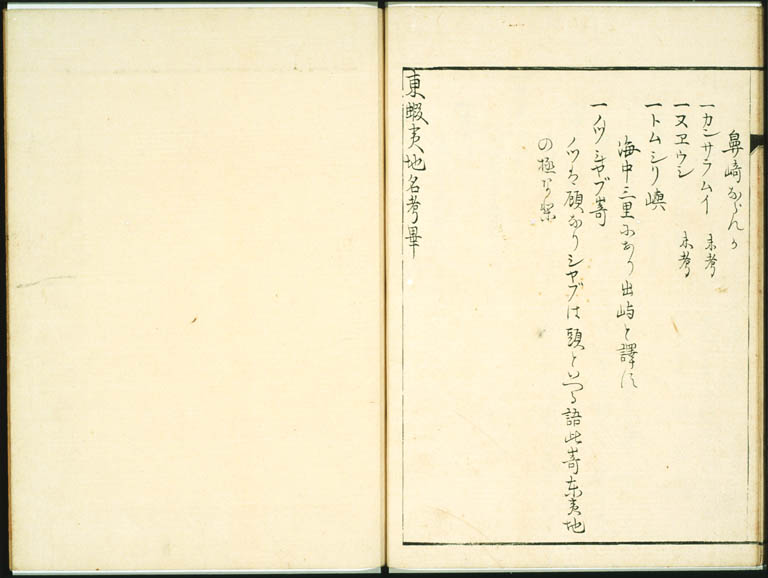 鼻崎ならんか
一カンサラムイ 未考
一ヌヱウシ 未考
一トムシリ嶼
海中三里にあり出嶼と譯す
一ノツシヤブ嵜
ノツは顧なりシヤブは頭といふ語此嵜東夷地
の極なり
東蝦夷地名考畢